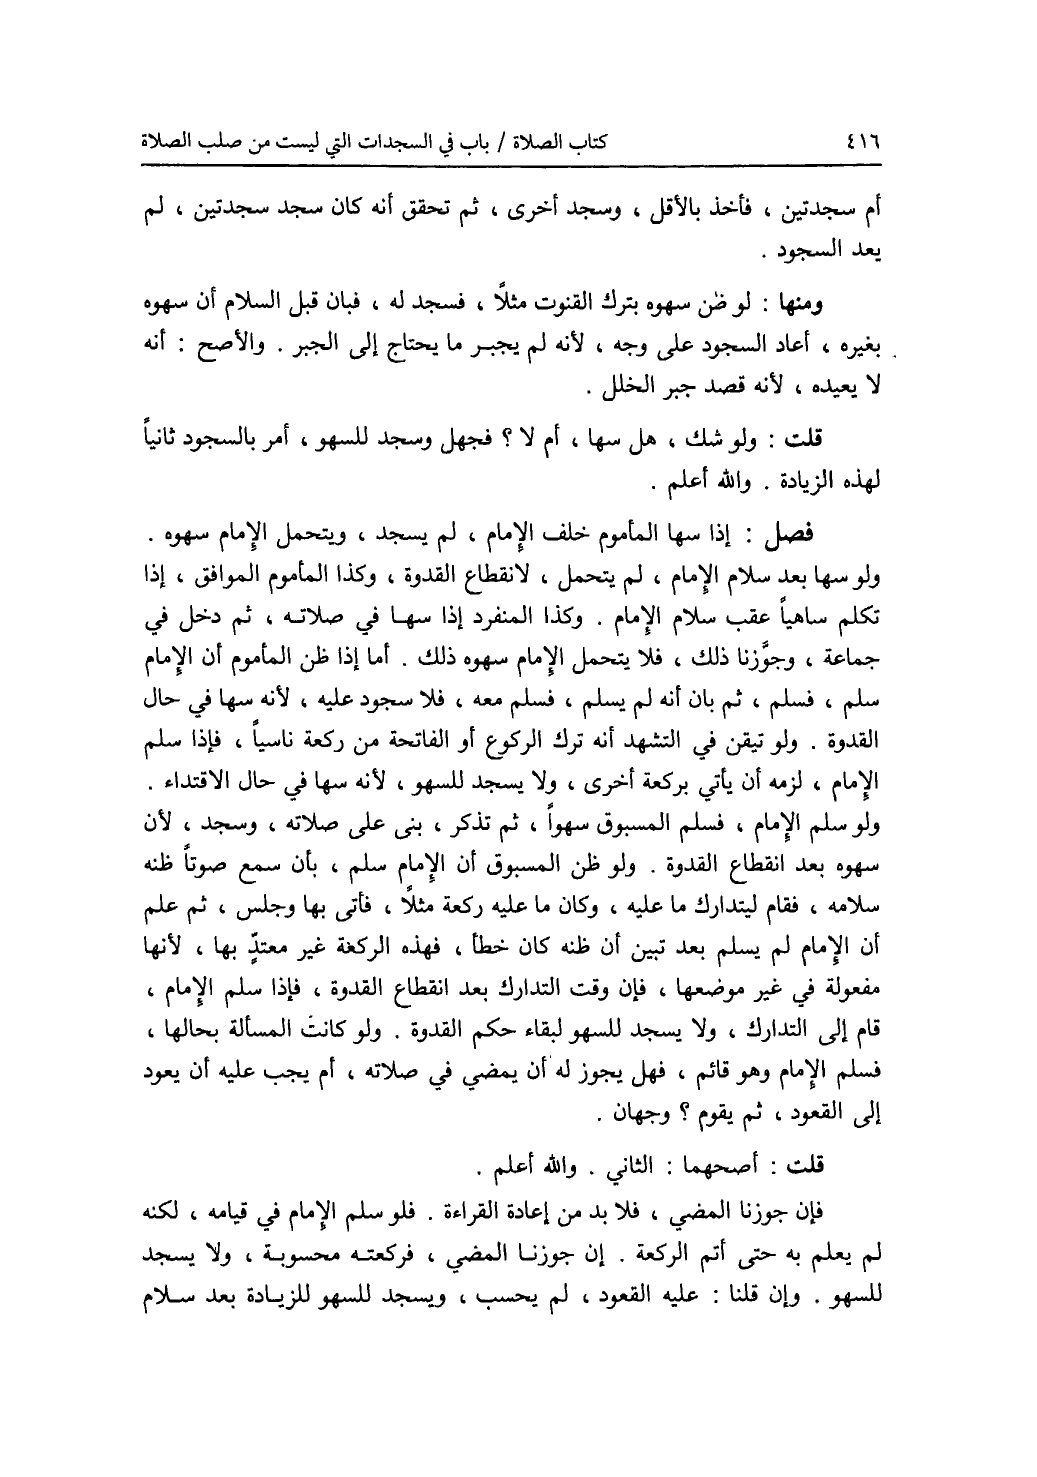 ٤١٦ كتاب الصلاة / باب في السجدات التي ليست من صلب الصلاة
أم سجدتين ، فأخذ بالأقل ، وسجد أخرى ، ثم تحقق أنه كان سجد سجدتين ، لم
يعد السجود .
ومنها : لو ظن سهوه بترك القنوت مثلاً ، فسجد له ، فبان قبل السلام أن سهوه
بغيره ، أعاد السجود على وجه ، لأنه لم يجبر ما يحتاج إلى الجبر . والأصح : أنه
لا يعيده ، لأنه قصد جبر الخلل .
قلت : ولو شك ، هل سها ، أم لا ؟ فجهل وسجد للسهو ، أمر بالسجود ثانياً
لهذه الزيادة . والله أعلم .
فصل : إذا سها المأموم خلف الإمام ، لم يسجد ، ويتحمل الإمام سهوه .
ولو سها بعد سلام الإمام ، لم يتحمل ، لانقطاع القدوة ، وكذا المأموم الموافق ، إذا
تكلم ساهياً عقب سلام الإمام . وكذا المنفرد إذا سها في صلاته ، ثم دخل في
جماعة ، وجوَّزنا ذلك ، فلا يتحمل الإمام سهوه ذلك . أما إذا ظن المأموم أن الإمام
سلم ، فسلم ، ثم بان أنه لم يسلم ، فسلم معه ، فلا سجود عليه ، لأنه سها في حال
القدوة . ولو تيقن في التشهد أنه ترك الركوع أو الفاتحة من ركعة ناسياً ، فإذا سلم
الإمام ، لزمه أن يأتي بركعة أخرى ، ولا يسجد للسهو ، لأنه سها في حال الاقتداء .
ولو سلم الإمام ، فسلم المسبوق سهواً ، ثم تذكر ، بنى على صلاته ، وسجد ، لأن
سهوه بعد انقطاع القدوة . ولو ظن المسبوق أن الإمام سلم ، بأن سمع صوتاً ظنه
سلامه ، فقام ليتدارك ما عليه ، وكان ما عليه ركعة مثلاً ، فأتى بها وجلس ، ثم علم
أن الإمام لم يسلم بعد تبين أن ظنه كان خطأ ، فهذه الركعة غير معتدٍّ بها ، لأنها
مفعولة في غير موضعها ، فإن وقت التدارك بعد انقطاع القدوة ، فإذا سلم الإمام ،
قام إلى التدارك ، ولا يسجد للسهو لبقاء حكم القدوة . ولو كانت المسألة بحالها ،
فسلم الإمام وهو قائم ، فهل يجوز له أن يمضي في صلاته ، أم يجب عليه أن يعود
إلى القعود ، ثم يقوم ؟ وجهان .
قلت : أصحهما : الثاني . والله أعلم .
فإن جوزنا المضي ، فلا بد من إعادة القراءة . فلو سلم الإمام في قيامه ، لكنه
لم يعلم به حتى أتم الركعة . إن جوزنا المضي ، فركعته محسوبة ، ولا يسجد
للسهو . وإن قلنا : عليه القعود ، لم يحسب ، ويسجد للسهو للزيادة بعد سلام